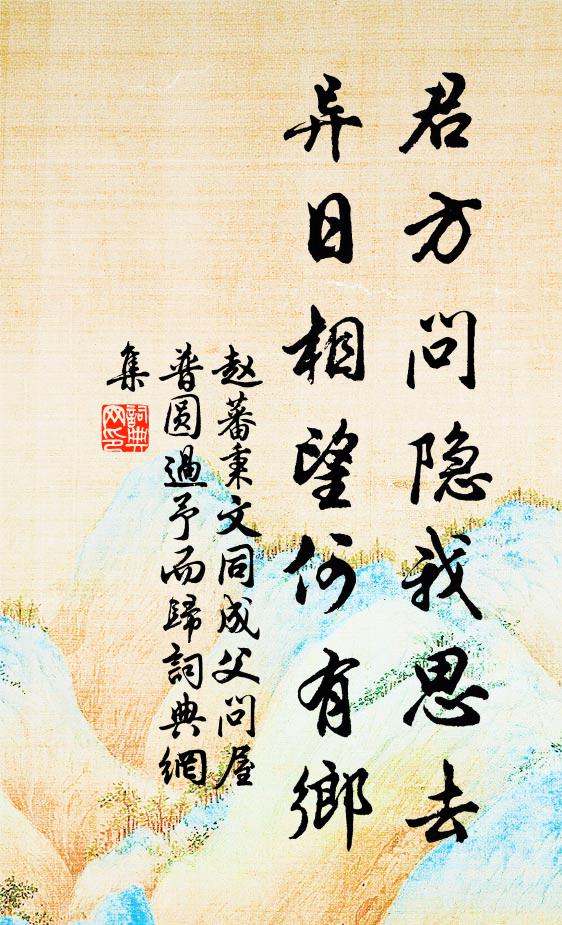 君方问隐我思去
异日相望何有鄉
赵蕃秉文同成父问屋
普圆過予而歸詞典網
集
詞典网印